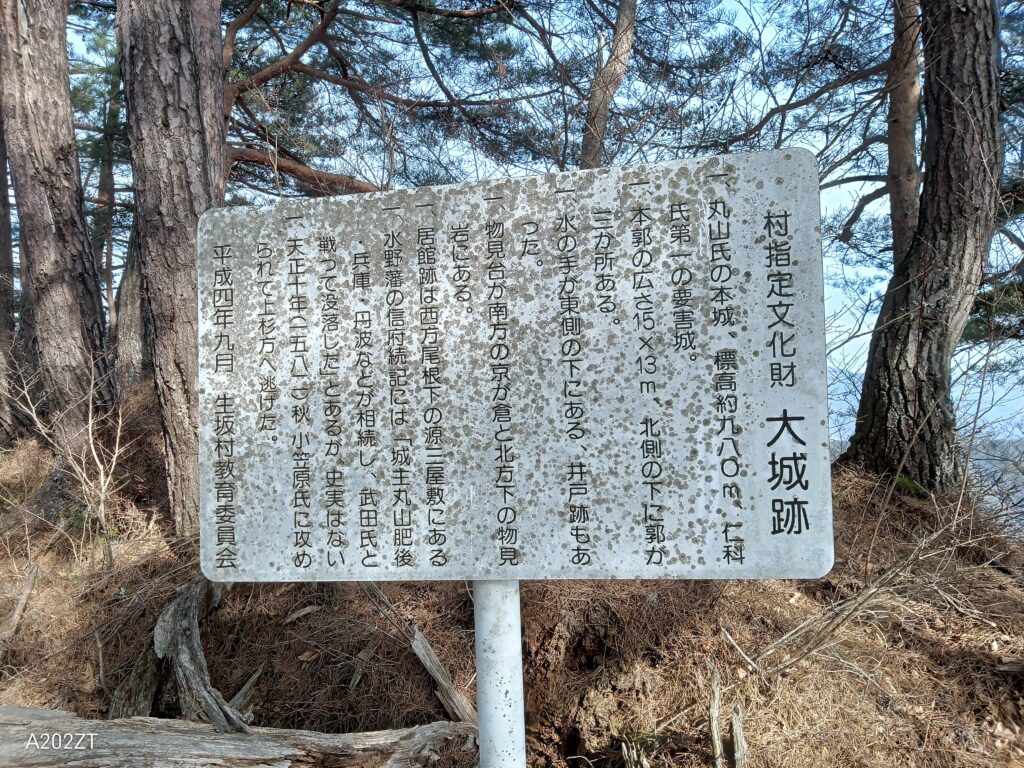 村指定文化財 大城跡
一、丸山氏の本城、標高約九八〇m、仁科
氏第一の要害城。
一 本郭の広さ15×13m、北側の下に郭が
三か所ある。
一、水の手が東側の下にある、井戸跡もあ
った。
一 物見台が南方の京が倉と北方下の物見
岩にある。
一、居館跡は西方尾根下の源三屋敷にある
一、水野藩の信府続記には「城主丸山肥後
・兵庫・丹波などが相続し、武田氏と
戦って没落した」とあるが、史実はない
一 天正十年(一五八二)秋 小笠原氏に攻め
られて上杉方へ逃げた。
平成四年九月 生坂村教育委員会
A202ZT